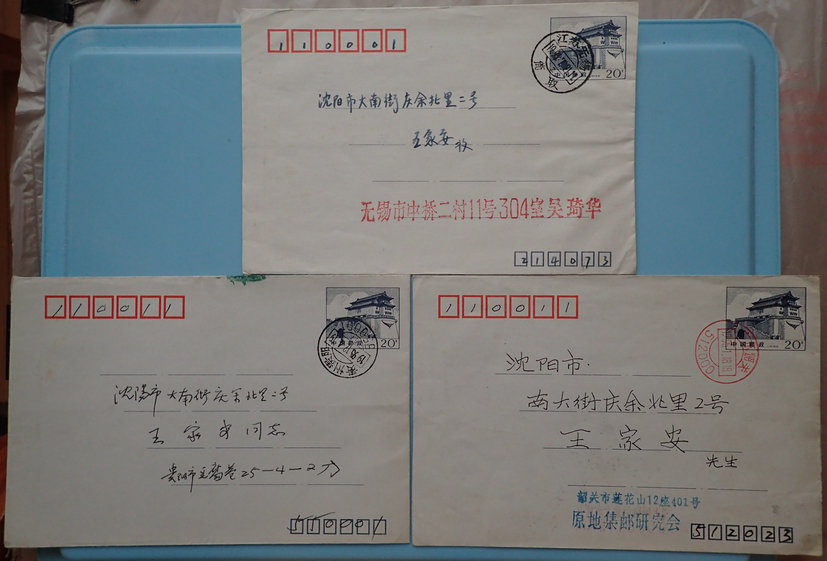 110001
20分
沈阳市大南街庆余北里二号
王家安收
无锡市中桥二村11号304室吴琦华
214073
110011
20分
沈阳市大南街庆余北里二号
王家安同志
25-4-2
110011
中国邮政
20分
沈阳市.
南大街庆余北里2号
王家安
先生
韶关市莲花山12座401号
原地集邮研究会
512023